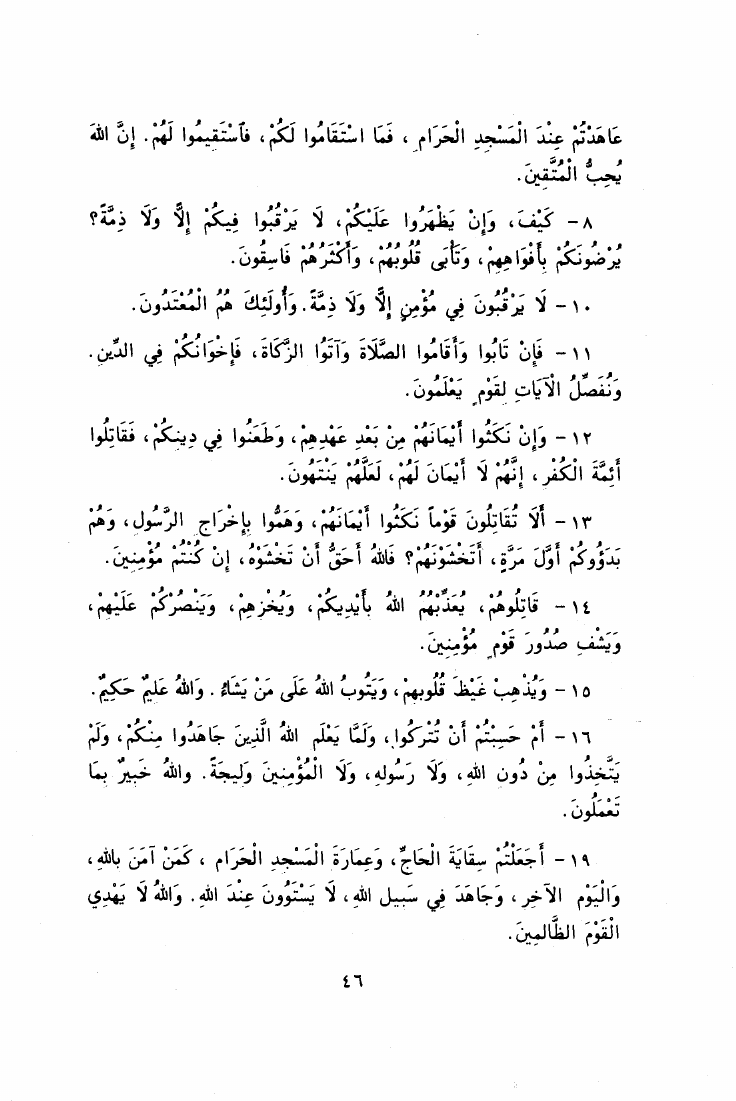 عَاهَدْتُمْ عِنْدَ الْمَسْجِدِ الْحَرَامِ ، فَمَا اسْتَقَامُوا لَكُمْ، فَآسْتَقِيمُوا لَهُمْ. إِنَّ اللهَ
يُحِبُّ الْمُتَّقِينَ.
٨ - كَيْفَ، وَإِنْ يَظْهَرُوا عَلَيْكُمْ، لَا يَرْقُبُوا فِيكُمْ إِلًّا وَلَا ذِمَّةً؟
يُرْضُونَكُمْ بِأَفْوَاهِهِمْ، وَتَأْبَى قُلُوبُهُمْ، وَأَكْثَرُهُمْ فَاسِقُونَ.
١٠ - لَا يَرْقُبُونَ فِي مُؤْمِنٍ إِلًّا وَلَا ذِمَّةً. وَأُولَئِكَ هُمُ الْمُعْتَدُونَ.
١١ - فَإِنْ تَابُوا وَأَقَامُوا الصَّلَاةَ وَآتَوُا الزَّكَاةَ، فَإِخْوَانُكُمْ فِي الدِّينِ.
وَنُفَصِّلُ الْآيَاتِ لِقَوْمٍ يَعْلَمُونَ.
١٢ - وَإِنْ نَكَثُوا أَيْمَانَهُمْ مِنْ بَعْدِ عَهْدِهِمْ، وَطَعَنُوا فِي دِينِكُمْ، فَقَاتِلُوا
أَئِمَّةَ الْكُفْرِ، إِنَّهُمْ لَا أَيْمَانَ لَهُمْ، لَعَلَّهُمْ يَنْتَهُونَ.
١٣ - أَلَا تُقَاتِلُونَ قَوْماً نَكَثُوا أَيْمَانَهُمْ، وَهَمُّوا بِإِخْرَاجِ الرَّسُولِ، وَهُمْ
بَدَؤُوكُمْ أَوَّلَ مَرَّةٍ، أَتَخْشَوْنَهُمْ؟ فَاللهُ أَحَقُّ أَنْ تَخْشَوْهُ، إِنْ كُنْتُمْ مُؤْمِنِينَ.
١٤ - قَاتِلُوهُمْ، يُعَذِّبْهُمُ اللهُ بِأَيْدِيكُمْ، وَيُخْزِهِمْ، وَيَنْصُرْكُمْ عَلَيْهِمْ،
وَيَشْفِ صُدُورَ قَوْمٍ مُؤْمِنِينَ.
١٥ - وَيُذْهِبْ غَيْظَ قُلُوبِهِمْ، وَيَتُوبُ اللهُ عَلَى مَنْ يَشَاءُ. وَاللهُ عَلِيمٌ حَكِيمٌ.
١٦ - أَمْ حَسِبْتُمْ أَنْ تُتْرَكُوا، وَلَمَّا يَعْلَمِ اللهُ الَّذِينَ جَاهَدُوا مِنْكُمْ، وَلَمْ
يَتَّخِذُوا مِنْ دُونِ اللهِ، وَلَا رَسُولِهِ، وَلَا الْمُؤْمِنِينَ وَلِيجَةً. واللهُ خَبِيرٌ بِمَا
تَعْمَلُونَ.
١٩ - أَجَعَلْتُمْ سِقَايَةَ الْحَاجِّ، وَعِمَارَةَ الْمَسْجِدِ الْحَرَامِ ، كَمَنْ آمَنَ بِاللهِ،
وَالْيَوْمِ الْآخِرِ، وَجَاهَدَ فِي سَبِيلِ اللهِ، لَا يَسْتَوُونَ عِنْدَ اللهِ. وَاللهُ لَا يَهْدِي
الْقَوْمَ الظَّالِمِينَ.
٤٦